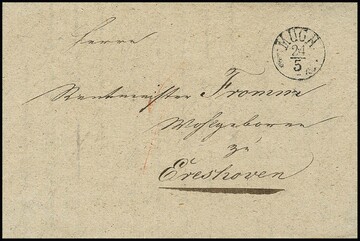 Herrn
RUCH
24
5
Rentmeister Fromm
Wohlgeboren
zu
Ereshoven